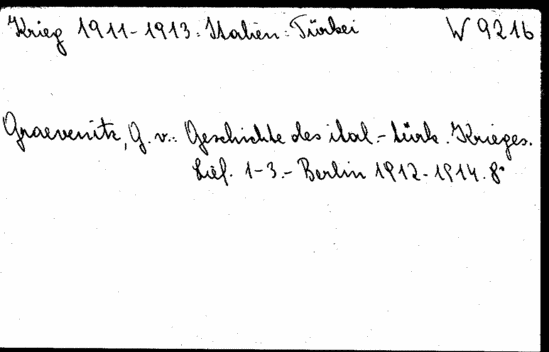 Krieg 1911-1913: Italien: Türkei W 9216
Graevenitz, G. v.: Geschichte des ital.-türk. Krieges.
Lief. 1-3.- Berlin 1912-1914. 8°